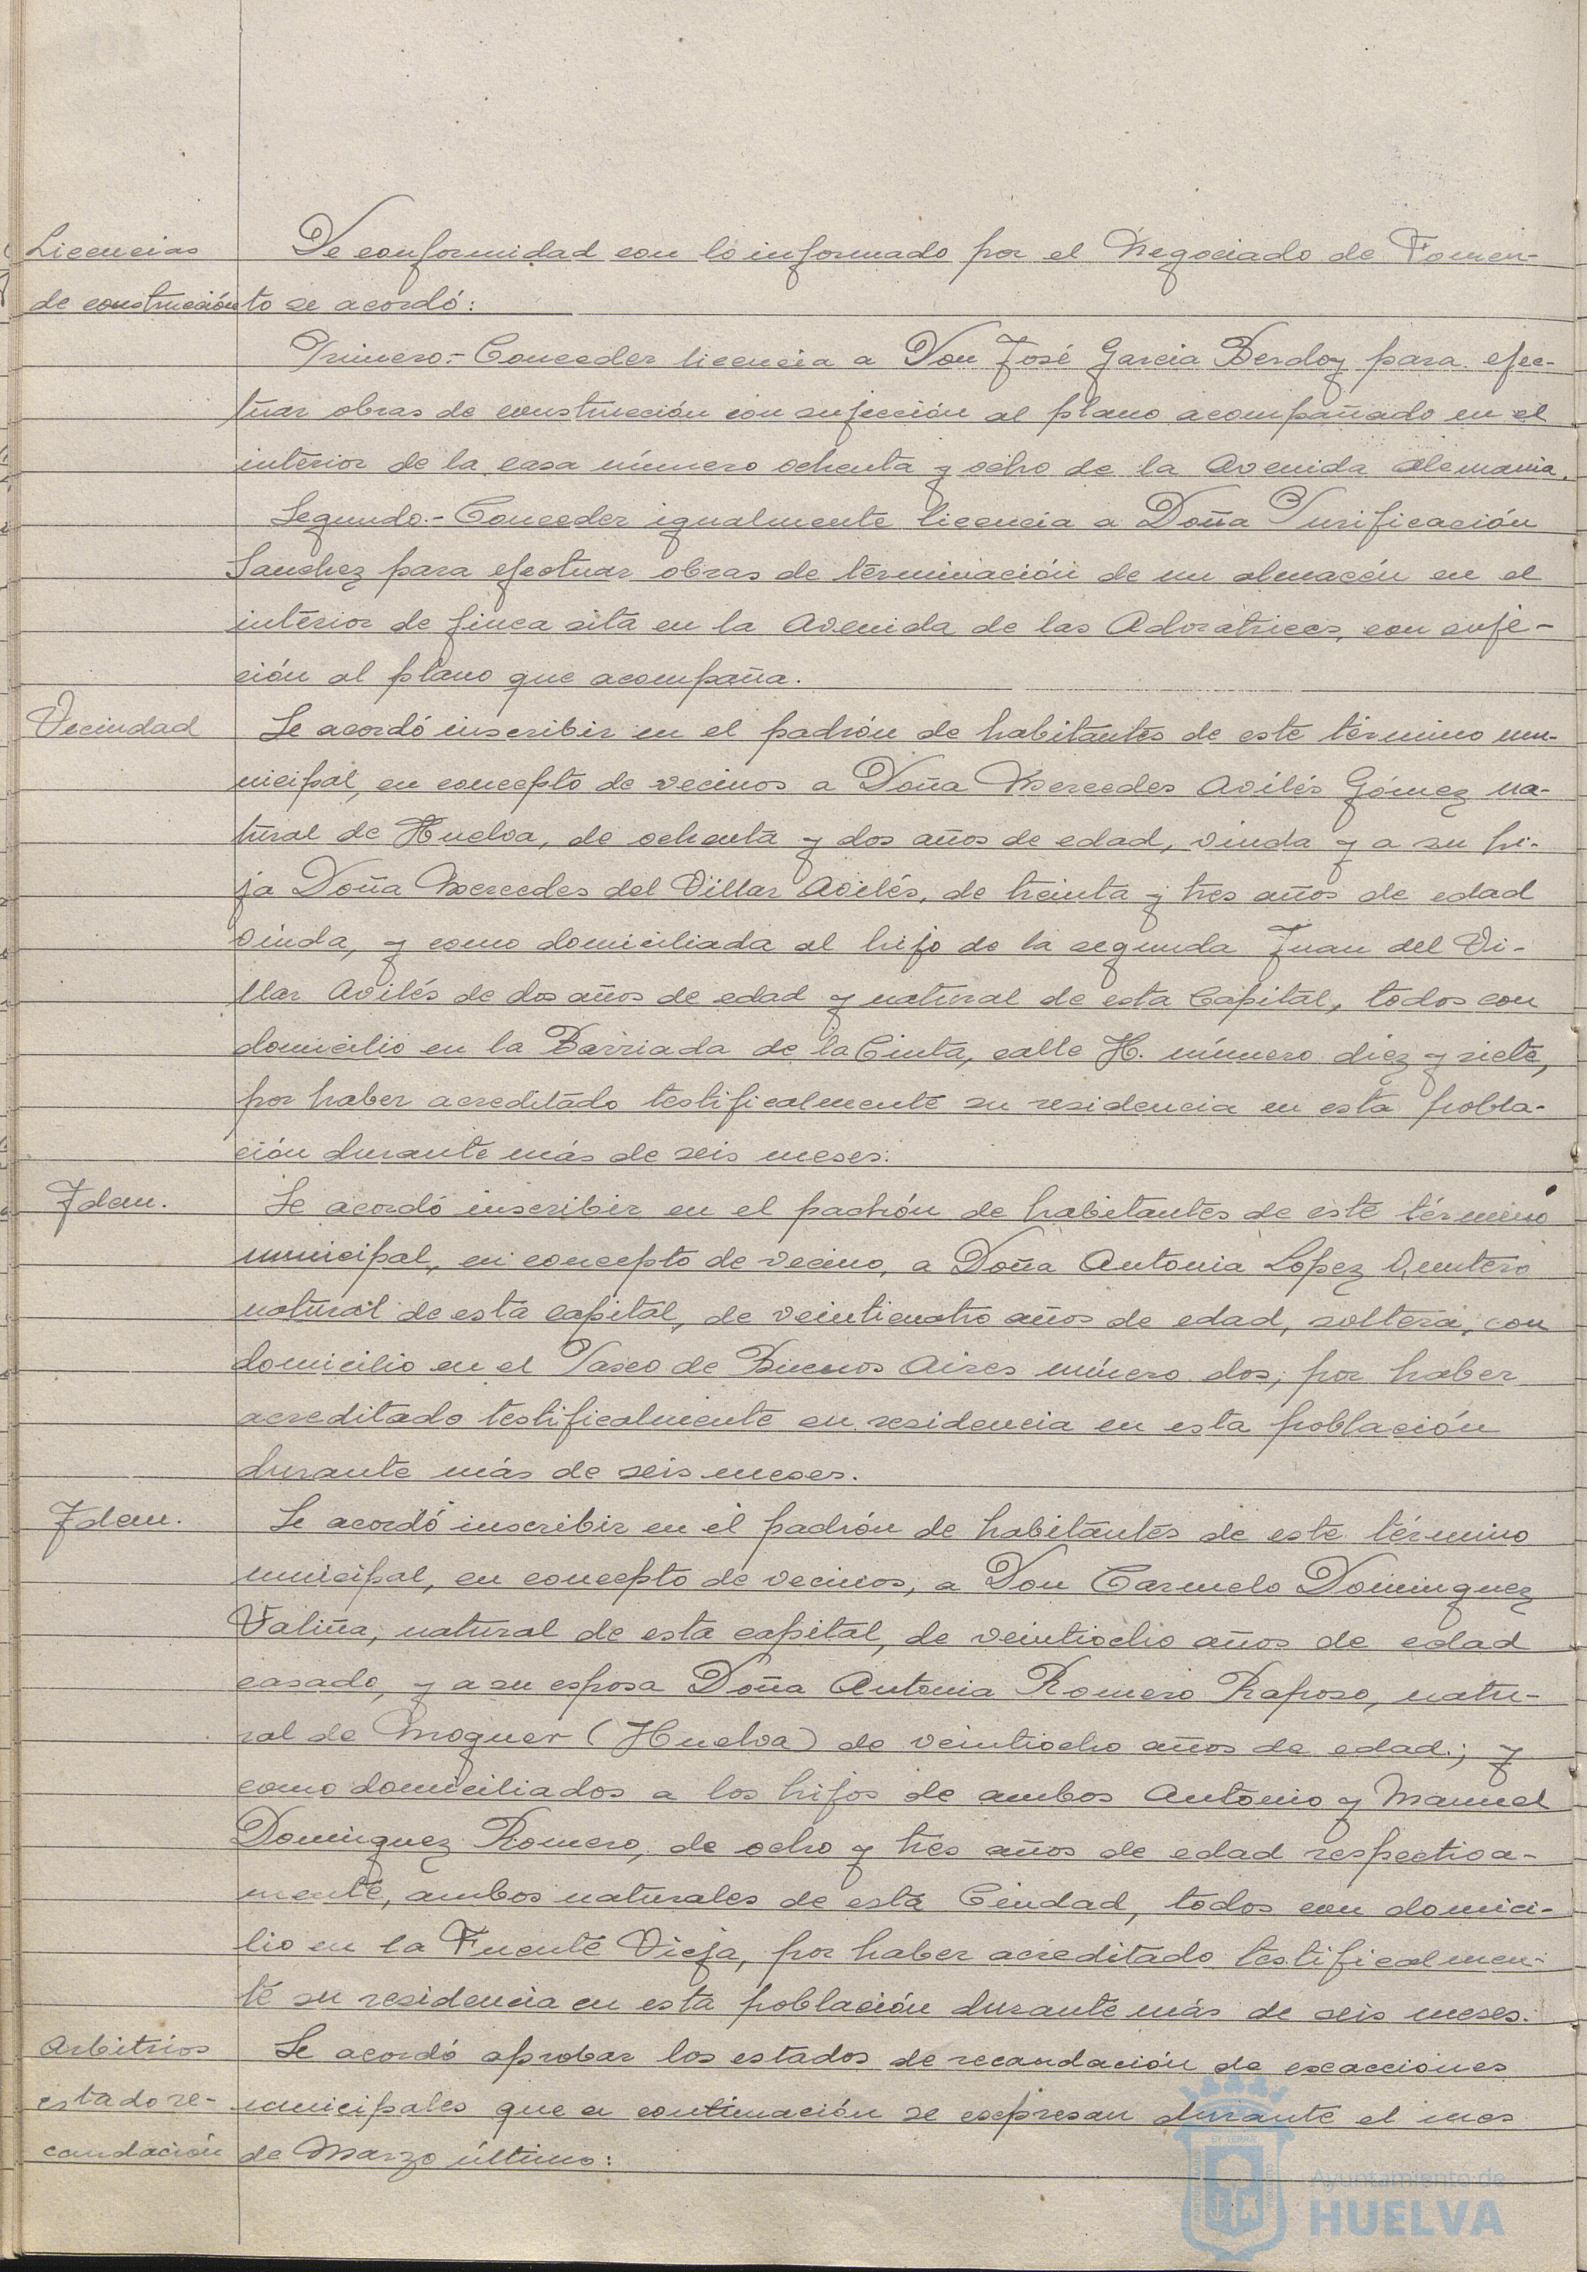 Licencias
de construcción
De conformidad con lo informado por el Negociado de Fomen-
to se acordó:
Primero.- Conceder licencia a Don José Garcia Berdoy para efec-
tuar obras de construcción con sujección al plano acompañado en el
interior de la casa número ochenta y ocho de la Avenida Alemania.
Segundo.- Conceder igualmente licencia a Doña Purificación
Sanchez para efectuar obras de terminación de un almacén en el
interior de finca sita en la Avenida de las Adoratrices, con suje-
ción al plano que acompaña.
Vecindad
Se acordó inscribir en el padrón de habitantes de este término mu-
nicipal, en concepto de vecinos a Doña Mercedes Avilés Gómez na-
tural de Huelva, de ochenta y dos años de edad, viuda y a su hi-
ja Doña Mercedes del Villar Avilés, de treinta y tres años de edad
viuda, y como domiciliada al hijo de la segunda Juan del Vi-
llar Avilés de dos años de edad y natural de esta Capital, todos con
domicilio en la Barriada de la Cinta, calle H. número diez y siete,
por haber acreditado testificalmente su residencia en esta pobla-
ción durante más de seis meses.
Idem.
Se acordó inscribir en el padrón de habitantes de este término
municipal, en concepto de vecino, a Doña Antonia Lopez Quintero
natural de esta capital, de veinticuatro años de edad, soltera, con
domicilio en el Paseo de Buenos Aires número dos, por haber
acreditado testificalmente su residencia en esta población
durante más de seis meses.
Idem.
Se acordó inscribir en el padrón de habitantes de este término
municipal, en concepto de vecinos, a Don Carmelo Dominguez
Faliña, natural de esta capital, de veintiocho años de edad
casado, y a su esposa Doña Antonia Romero Raposo, natu-
ral de Moguer (Huelva) de veintiocho años de edad; y
como domiciliados a los hijos de ambos Antonio y Manuel
Dominguez Romero, de ocho y tres años de edad respectiva-
mente, ambos naturales de esta Ciudad, todos con domici-
lio en la Fuente Vieja, por haber acreditado testificalmen-
te su residencia en esta población durante más de seis meses.
Arbitrios
estado re-
caudación
Se acordó aprobar los estados de recaudación de exacciones
municipales que a continuación se expresan durante el mes
de Marzo último:
Ayuntamiento de
HUELVA